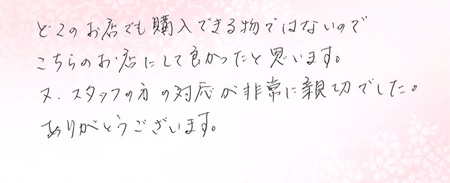 どこのお店でも購入できる物ではないので
こちらのお店にして良かったと思います。
又、スタッフの方の対応が非常に親切でした。
ありがとうございます。